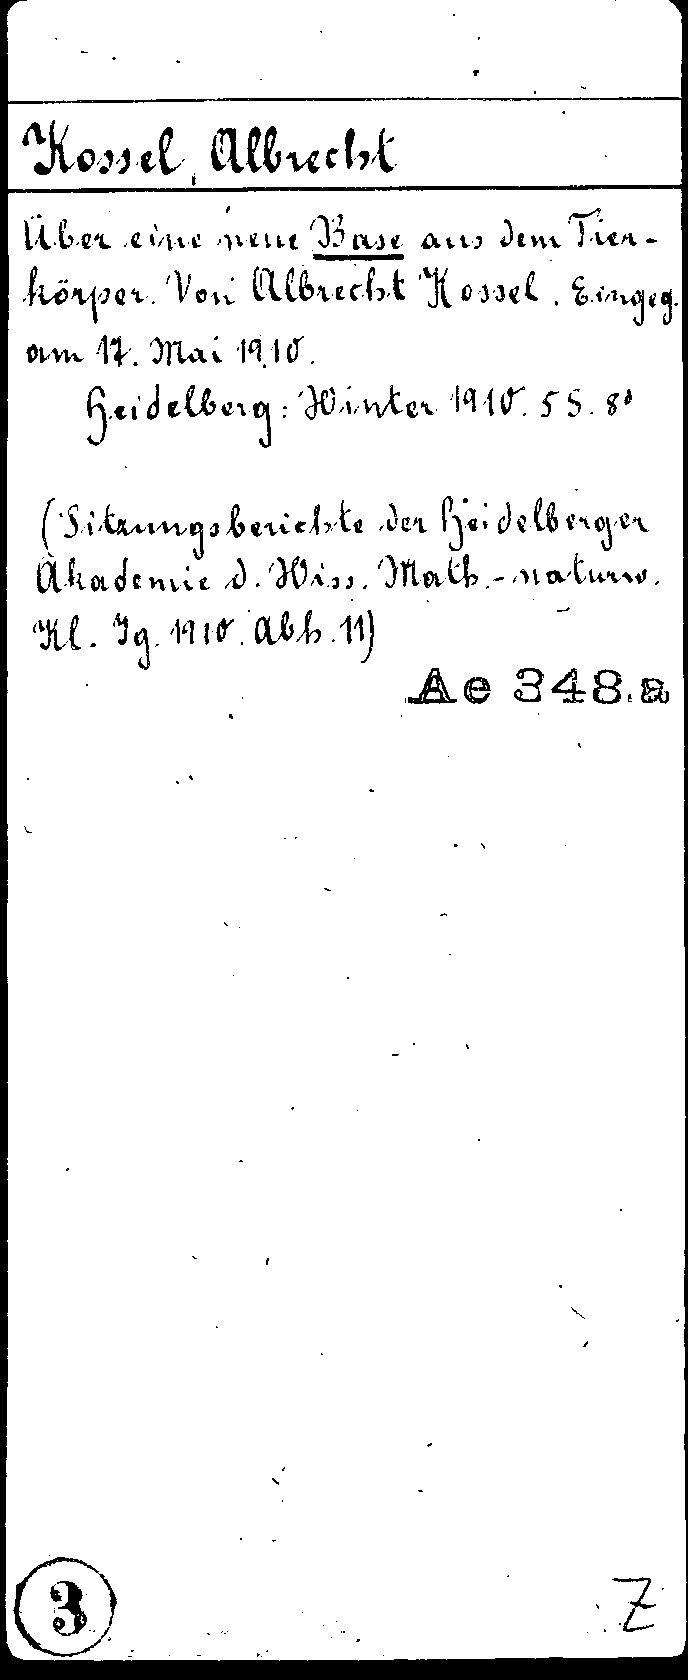 Kossel, Albrecht
Über eine neue Base aus dem Tier-
körper. Von Albrecht Kossel. Eingeg.
am 17. Mai 1910.
Heidelberg: Winter 1910. 5 S. 8°
(Sitzungsberichte der Heidelberger
Akademie d. Wiss. Math.-naturw.
Kl. Jg. 1910. Abh. 11)
Ae 348.a
3
Z